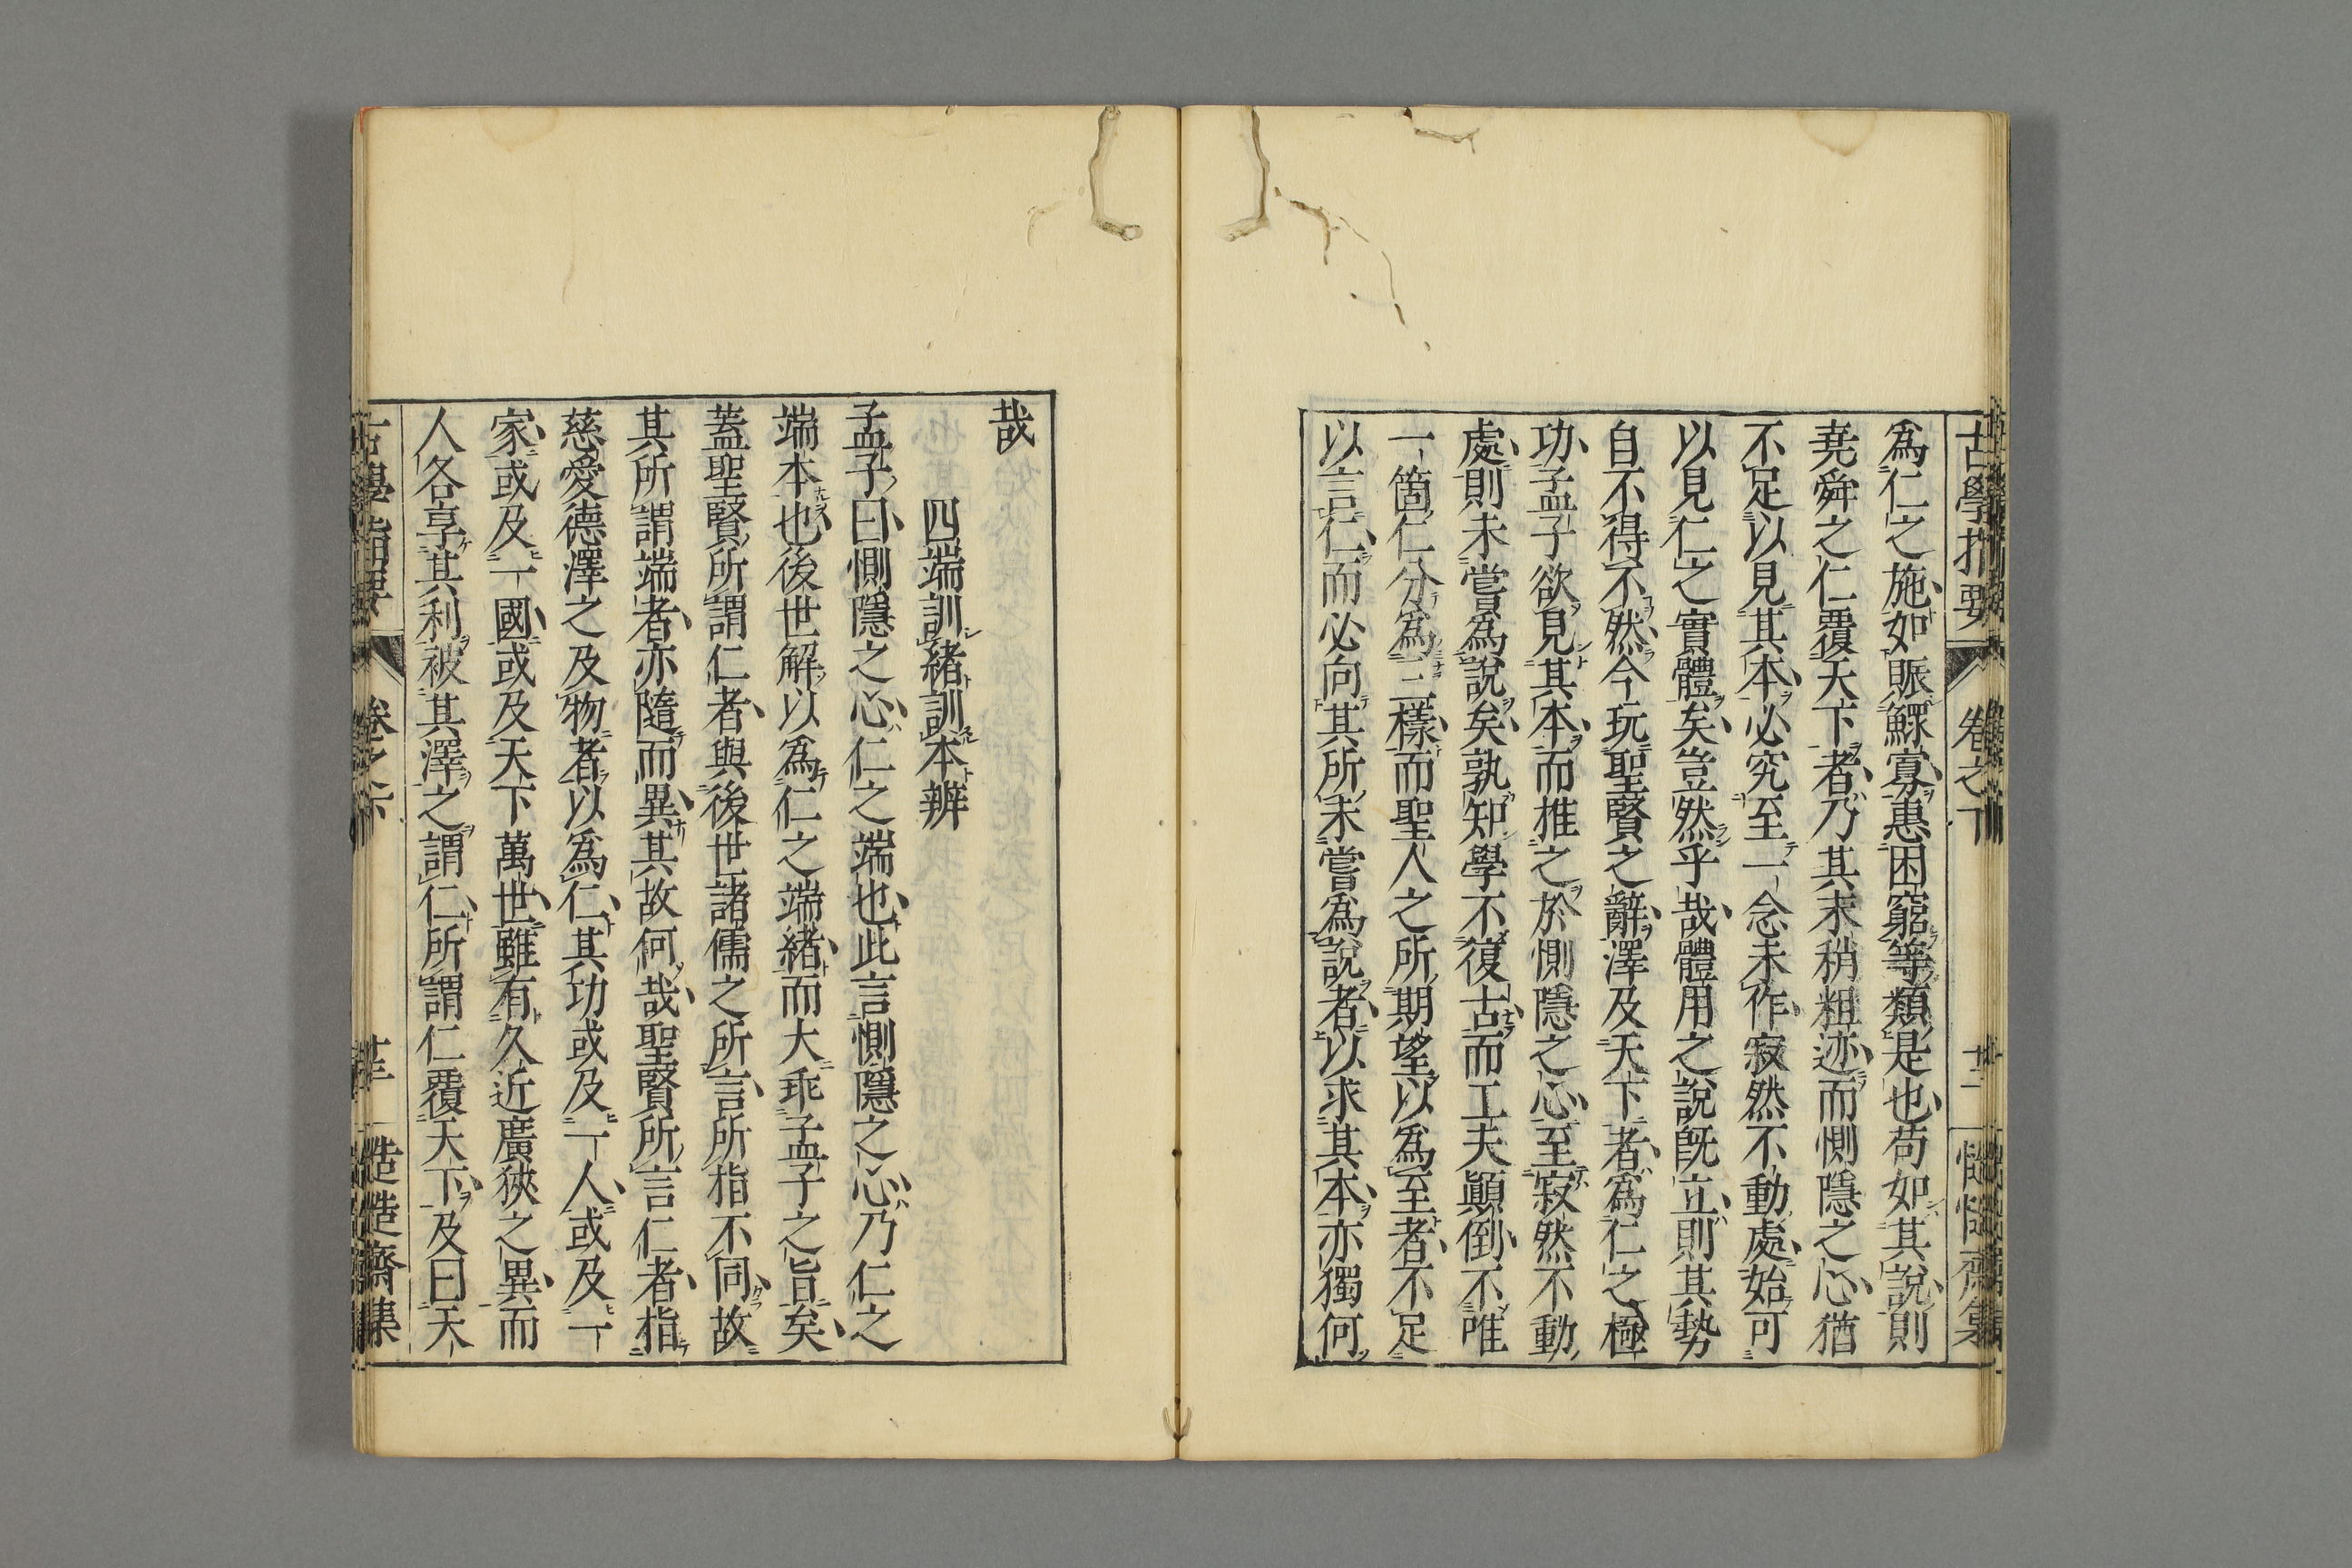 古學指要
卷之下
爲仁之施如賑鰥寡惠困窮等類是也苟如其說則
堯舜之仁覆天下者乃其末稍粗迹而惻隱之心猶
不足以見其本必究至一念未作寂然不動處始可
以見仁之實體矣豈然乎哉體用之說既立則其勢
自不得不然今玩聖賢之辭澤及天下者爲仁之極
功孟子欲見其本而推之於惻隱之心至寂然不動
處則未嘗爲說矣孰知學不復古而工夫顚倒不唯
一箇仁分爲二樣而聖人之所期望以爲至者不足
以言仁而必向其所未嘗爲說者以求其本亦獨何
哉
四端訓緒訓本辨
孟子曰惻隱之心仁之端也此言惻隱之心乃仁之
端本也後世解以爲仁之端緒而大乖孟子之旨矣
蓋聖賢所謂仁者與後世諸儒之所言所指不同故
其所謂端者亦隨而異其故何哉聖賢所言仁者指
慈愛德澤之及物者以爲仁其功或及一人或及一
家或及一國或及天下萬世雖有久近廣狹之異而
人各享其利被其澤之謂仁所謂仁覆天下及曰天